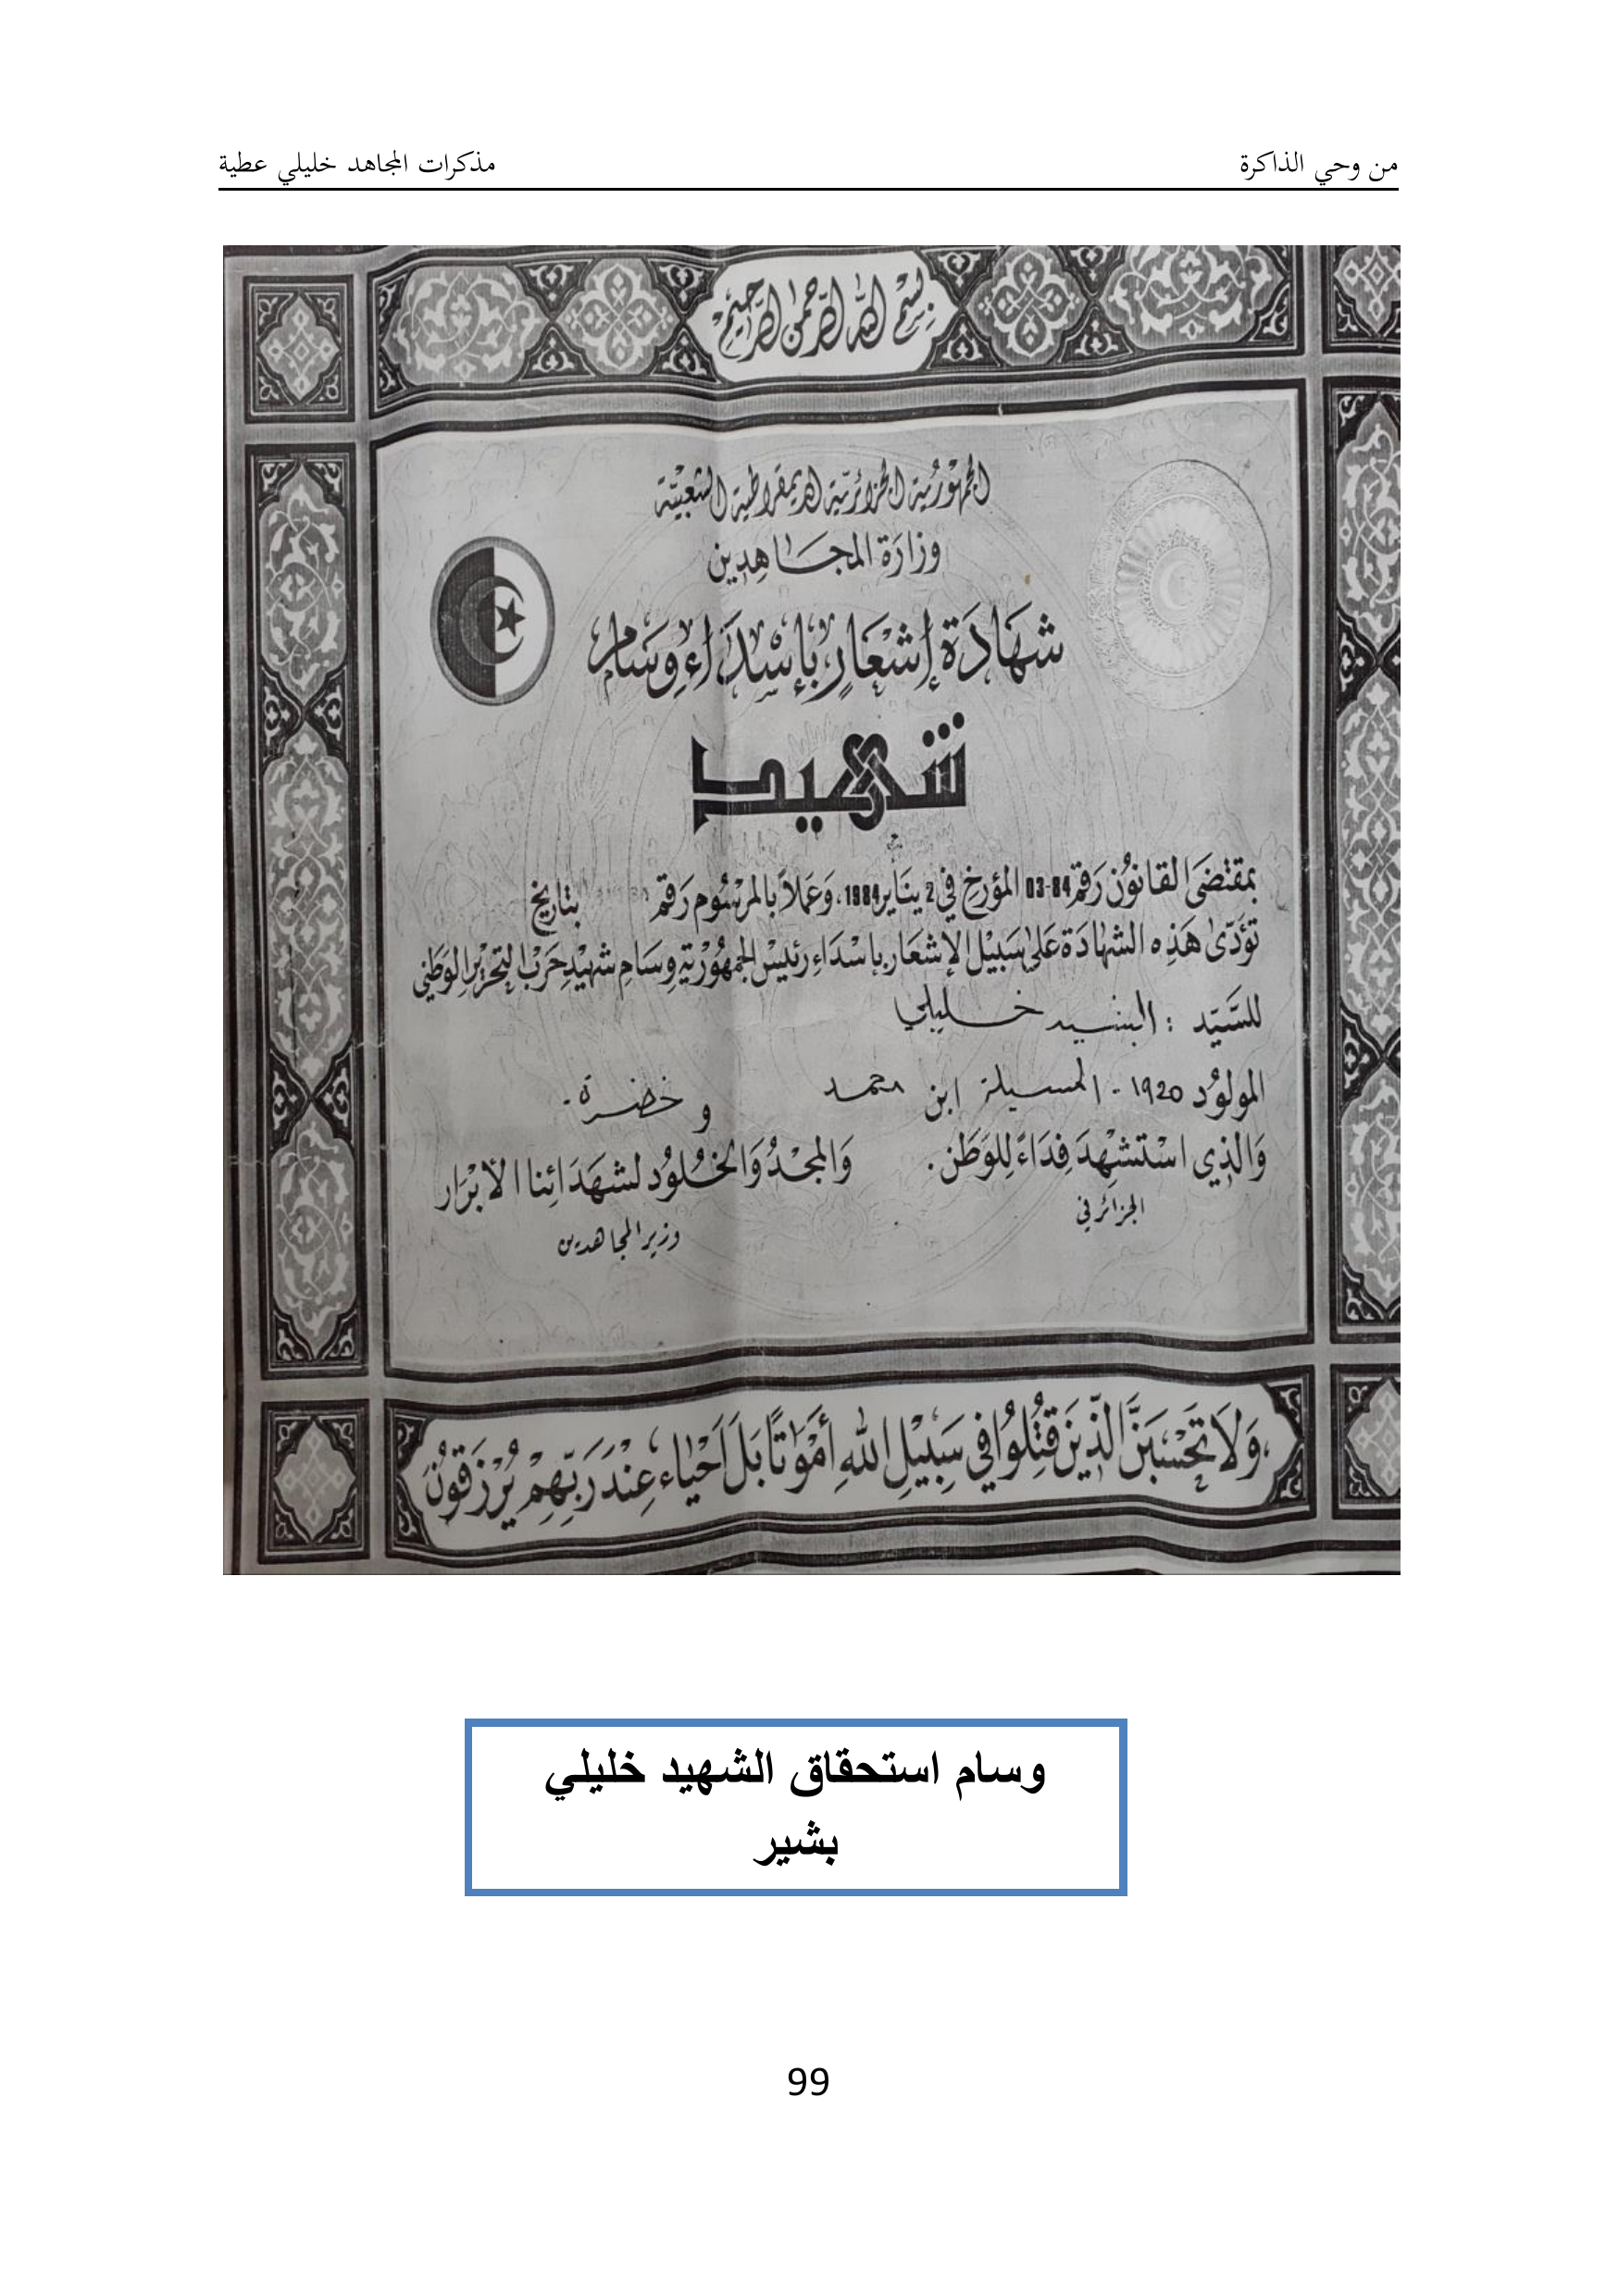 من وحي الذاكرة
مذكرات المجاهد خليلي عطية
بِسْمِ اللهِ الرَّحْمٰنِ الرَّحِيْمِ
الجُمْهُوْرِيَّة الجَزَائِرِيَّة الدِيمُقرَاطِيَّة الشَعْبِيَّة
وزَارَة المجَاهِدِين
شَهَادَة إِشْعَارٍ بِإِسْدَاءِ وِسَامِ
شهيد
بمقْتضَى القانوُن رَقم 84-03 المؤرخ في 2 ينَاير 1984، وَعَمَلاً بالمرْسُوم رَقم بتَاريخ
تؤدّى هَذِه الشهَادَة عَلى سَبِيْل الإشعَار بإسْدَاءِ رَئيْس الجمْهُوْريّةِ وِسَامِ شهيْدِ حَرْب التحْرِيْر الوَطَنِي
للسَّيّد : البشير خليلي
المولوُد 1920 - المسيلة ابن محمد و خضرة -
وَالذِي اسْتشْهِدَ فِدَاءً لِلوَطَن . وَالمجْدُ وَالخُلوُد لشهَدَائِنا الأَبْرَار
الجزائر في
وزير المجاهدين
وَلَا تَحْسَبَنَّ الَّذِيْنَ قُتِلُوْا فِي سَبِيْلِ اللّٰهِ أَمْوَاتًا بَلْ أَحْيَاء عِنْدَ رَبِّهِمْ يُرْزَقُوْنَ
وسام استحقاق الشهيد خليلي
بشير
99